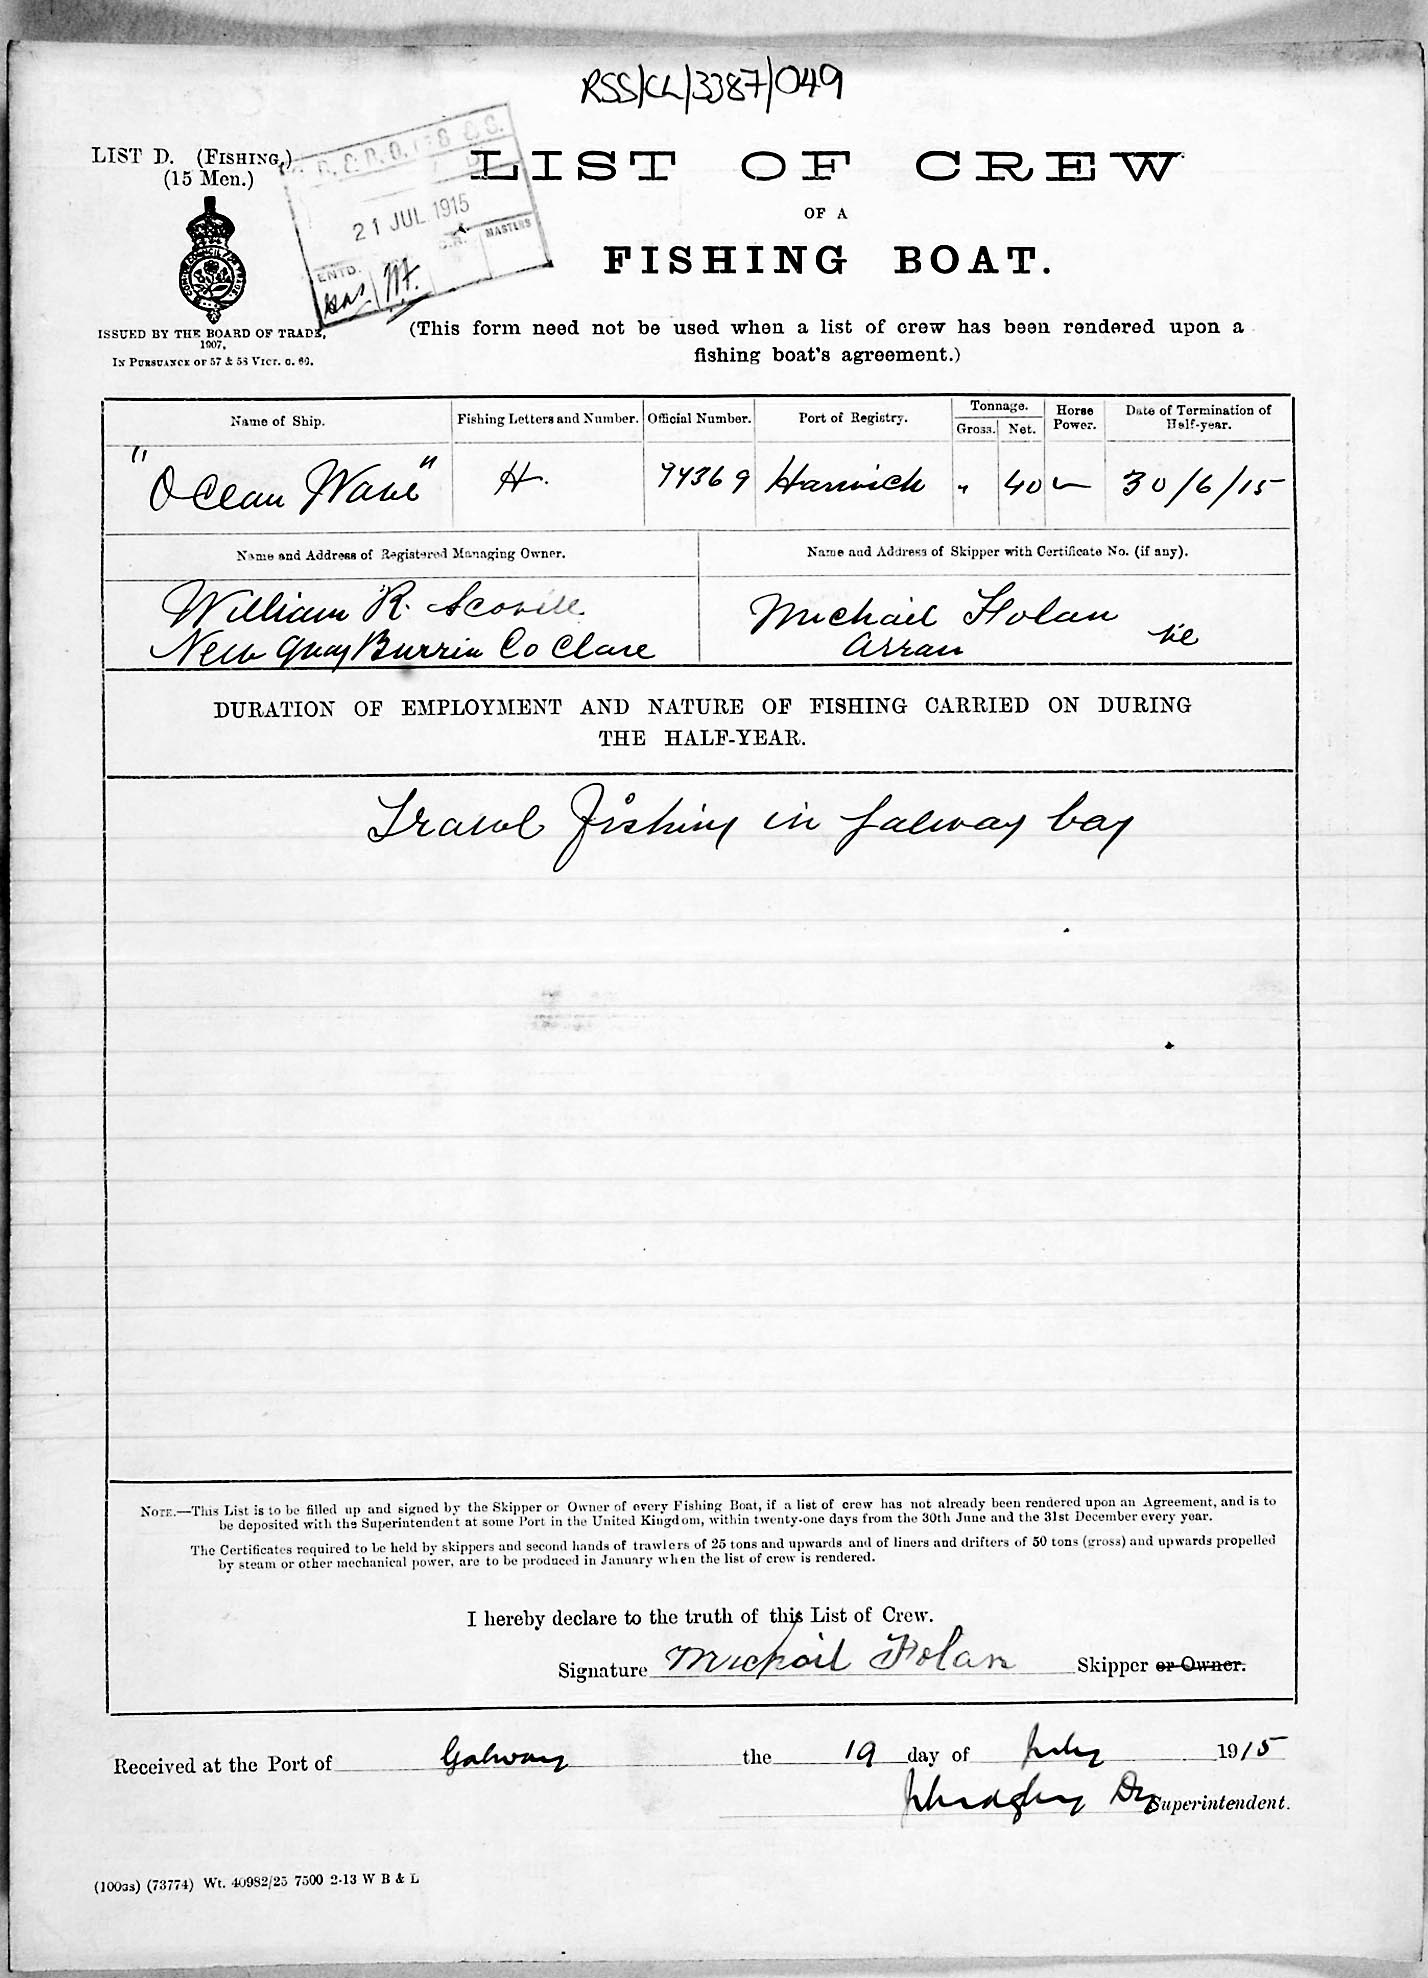 RSS/CL/3387/049
LIST D. (FISHING.)
(15 Men.)
21 JUL 1915
ENTD.
MASTERS
LIST OF CREW
OF A
FISHING BOAT.
ISSUED BY THE BOARD OF TRADE,
1907.
IN PURSUANCE OF 57 & 58 VICT. C. 60.
(This form need not be used when a list of crew has been rendered upon a
fishing boat's agreement.)
Name of Ship. Fishing Letters and Number. Official Number. Port of Registry. Tonnage. Gross. Net. Horse Power. Date of Termination of Half-year.
"Ocean Wave" H. 94369 Harwich " 40 30/6/15
Name and Address of Registered Managing Owner. Name and Address of Skipper with Certificate No. (if any).
William R. Scovell Michail Folan
New Quay Burrin Co Clare Arran
DURATION OF EMPLOYMENT AND NATURE OF FISHING CARRIED ON DURING
THE HALF-YEAR.
Trawl fishing in Galway bay
NOTE.—This List is to be filled up and signed by the Skipper or Owner of every Fishing Boat, if a list of crew has not already been rendered upon an Agreement, and is to
be deposited with the Superintendent at some Port in the United Kingdom, within twenty-one days from the 30th June and the 31st December every year.
The Certificates required to be held by skippers and second hands of trawlers of 25 tons and upwards and of liners and drifters of 50 tons (gross) and upwards propelled
by steam or other mechanical power, are to be produced in January when the list of crew is rendered.
I hereby declare to the truth of this List of Crew.
Signature Michail Folan Skipper or Owner.
Received at the Port of Galway the 19 day of July 1915
Dy Superintendent.
(100as) (73774) Wt. 40982/25 7500 2-13 W B & L